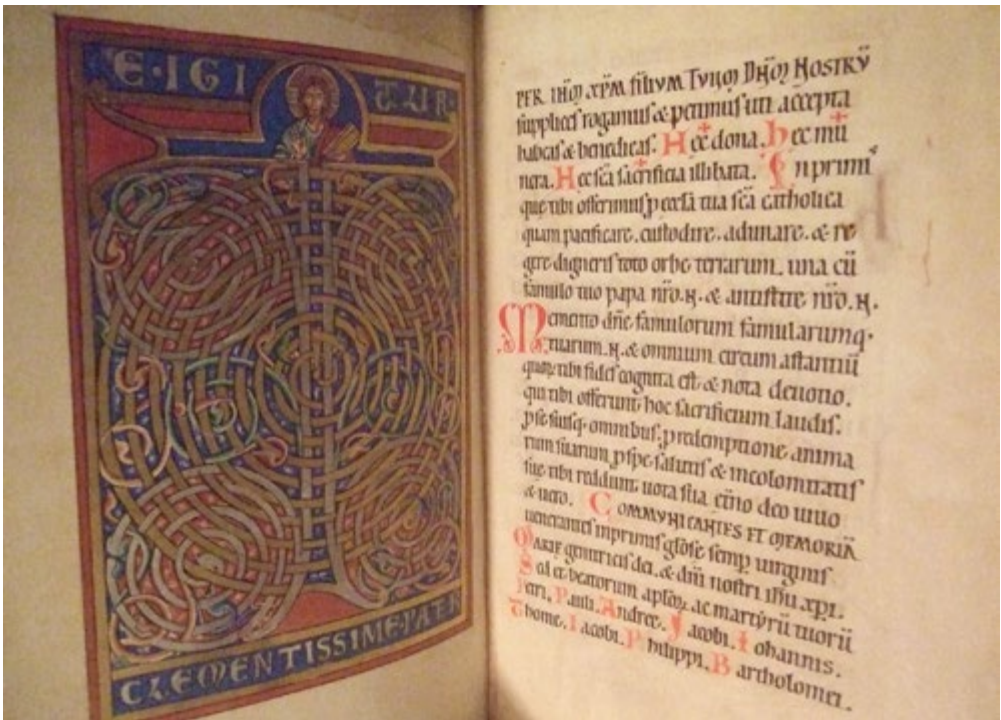 E·IGI
TUR·
CLEMENTISSIME·PAT
PER IHM XPM FILIVM TVUM DHM NOSTRV̄
supplices rogamus & petimus uti accepta
habeas & benedicas. Hec dona. hec mū
nera. Hec sc̄a sacrificia illibata. Inprimis
que tibi offerimus p eccl̄a tua sc̄a catholica
quam pacificare. custodire. adunare. & re
gere digneris toto orbe terrarum. una cū
famulo tuo papa nr̄o. N. & antistite nr̄o. N.
Memento dn̄e famulorum famularumq·
tuarum. N. & omnium circum astantiū
quor tibi fides cognita est & nota deuotio.
qui tibi offerunt hoc sacrificium laudis.
p se suisq· omnibus. p redemptione anima
rum suarum. p spe salutis & incolomitatis
sue tibi reddunt uota sua et̄no deo uiuo
& uero. COMMVNICANTES ET MEMORIĀ
uenerantes inprimis gl̄ose semp uirginis
MARIE genitricis dei. & dn̄i nostri ihu xp̄i.
Sed et beatorum apl̄oꝝ ac martyrū tuorū
Petri. Pauli. Andree. Jacobi. Iohannis.
Thome. Iacobi. Philippi. Bartholomei.